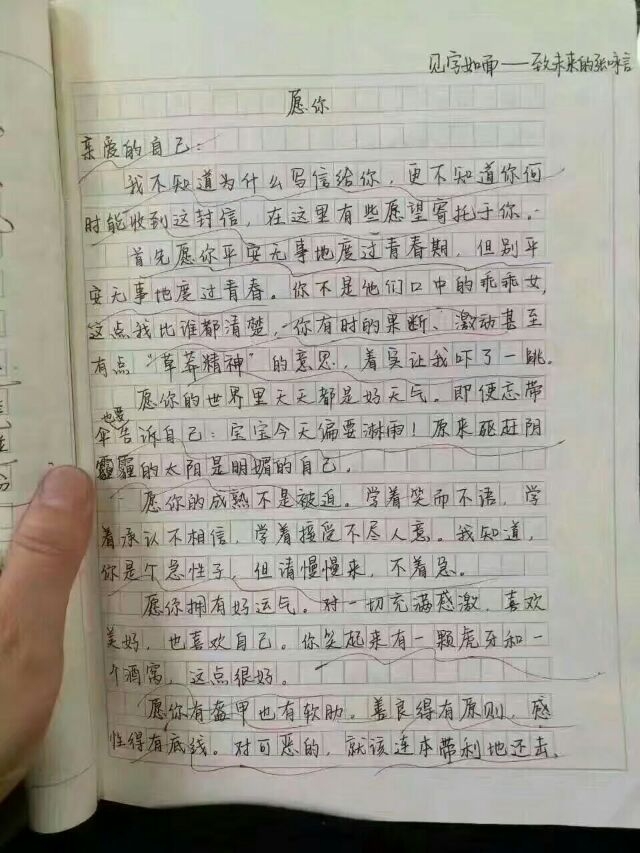 见字如面——致未来的张咏言
愿你
亲爱的自己:
我不知道为什么写信给你,更不知道你何
时能收到这封信,在这里有些愿望寄托于你。
首先愿你平安无事地度过青春期,但别平
安无事地度过青春。你不是他们口中的乖乖女,
这点我比谁都清楚,你有时的果断、激动甚至
有点“草莽精神”的意思,着实让我吓了一跳。
愿你的世界里天天都是好天气。即便忘带
伞也要告诉自己:宝宝今天偏要淋雨!原来驱赶阴
霾的太阳是明媚的自己。
愿你的成熟不是被迫。学着笑而不语,学
着承认不相信,学着接受不尽人意。我知道,
你是个急性子,但请慢慢来,不着急。
愿你拥有好运气。对一切充满感激,喜欢
美好,也喜欢自己。你笑起来有一颗虎牙和一
个酒窝,这点很好。
愿你有盔甲也有软肋。善良得有原则,感
性得有底线。对可恶的,就该连本带利地还去,